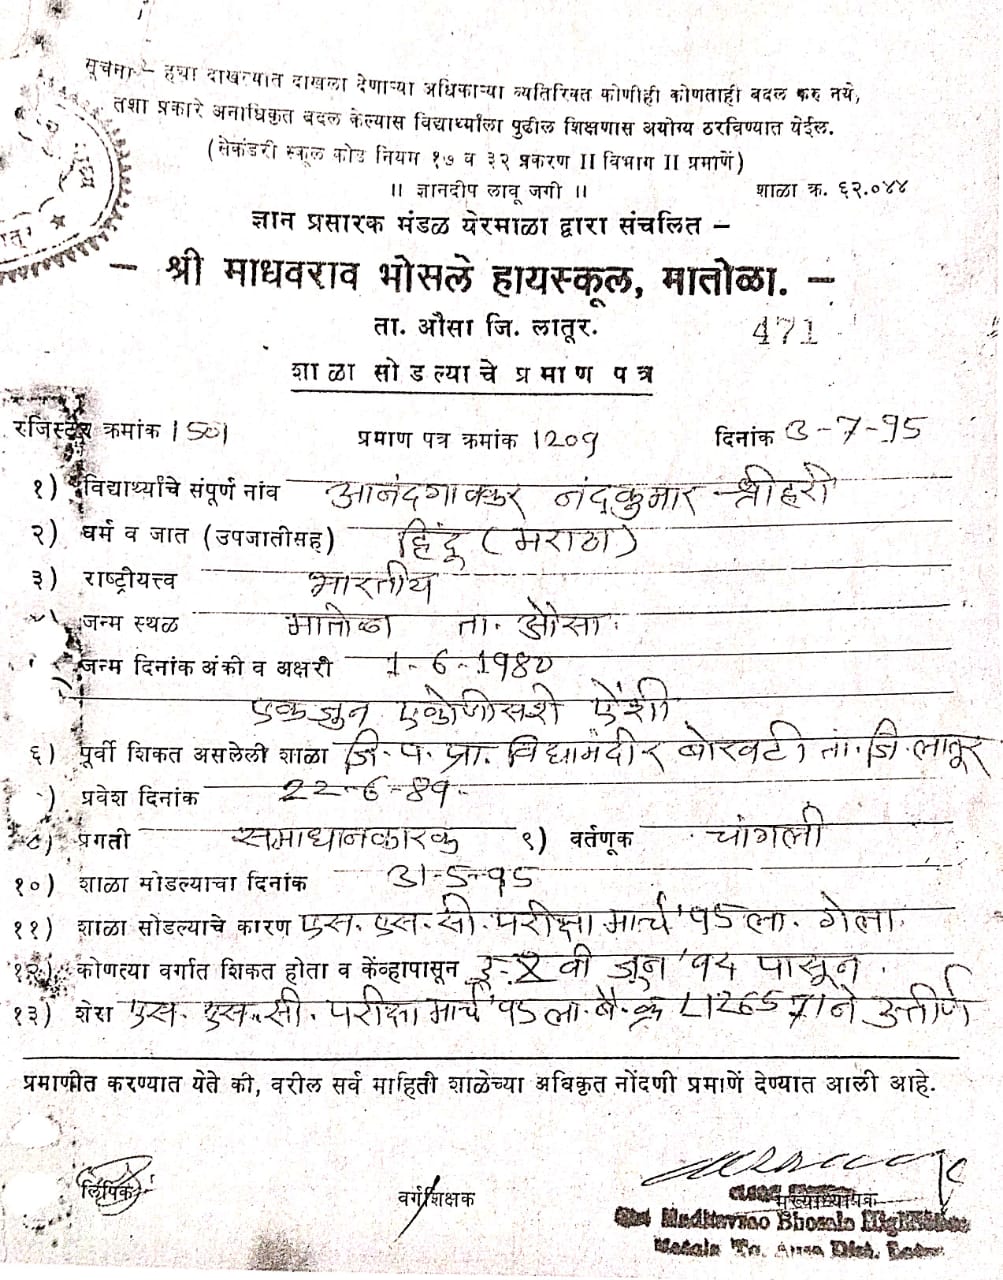 सूचना – ह्या दाखल्यात दाखला देणाऱ्या अधिकाऱ्या व्यतिरिक्त कोणीही कोणताही बदल करु नये,
तशा प्रकारे अनाधिकृत बदल केल्यास विद्यार्थ्याला पुढील शिक्षणास अयोग्य ठरविण्यात येईल.
(सेकंडरी स्कूल कोड नियम १७ व ३२ प्रकरण II विभाग II प्रमाणें)
॥ ज्ञानदीप लावू जगी ॥ शाळा क्र. ६२.०४४
ज्ञान प्रसारक मंडळ येरमाळा द्वारा संचलित –
– श्री माधवराव भोसले हायस्कूल, मातोळा. –
ता. औसा जि. लातूर. 471
शाळा सोडल्याचे प्रमाण पत्र
रजिस्टर क्रमांक 1501 प्रमाण पत्र क्रमांक 1209 दिनांक 3-7-95
१) विद्यार्थ्याचे संपूर्ण नांव आनंदगावकर नंदकुमार श्रीहरी
२) धर्म व जात (उपजातीसह) हिंदू (मराठा)
३) राष्ट्रीयत्त्व भारतीय
जन्म स्थळ मातोळा ता. औसा.
जन्म दिनांक अंकी व अक्षरी 1-6-1980
एक जुन एकोणीसशे ऐंशी
६) पूर्वी शिकत असलेली शाळा जि. प. प्रा. विद्यामंदीर बोरवटी ता. जि. लातूर
) प्रवेश दिनांक 22-6-89.
८) प्रगती समाधानकारक ९) वर्तणूक चांगली
१०) शाळा सोडल्याचा दिनांक 31-5-95
११) शाळा सोडल्याचे कारण एस. एस. सी. परीक्षा मार्च '95 ला. गेला.
१२) कोणत्या वर्गात शिकत होता व केंव्हापासून इ. X वी जून '94 पासून.
१३) शेरा एस. एस. सी. परीक्षा मार्च '95 ला. बै. क्र L126571 ने उत्तीर्ण
प्रमाणीत करण्यात येते की, वरील सर्व माहिती शाळेच्या अधिकृत नोंदणी प्रमाणें देण्यात आली आहे.
लिपिक वर्गशिक्षक मुख्याध्यापक
Shri Madhavrao Bhosale High School
Matola Tq. Ausa Dist. Latur